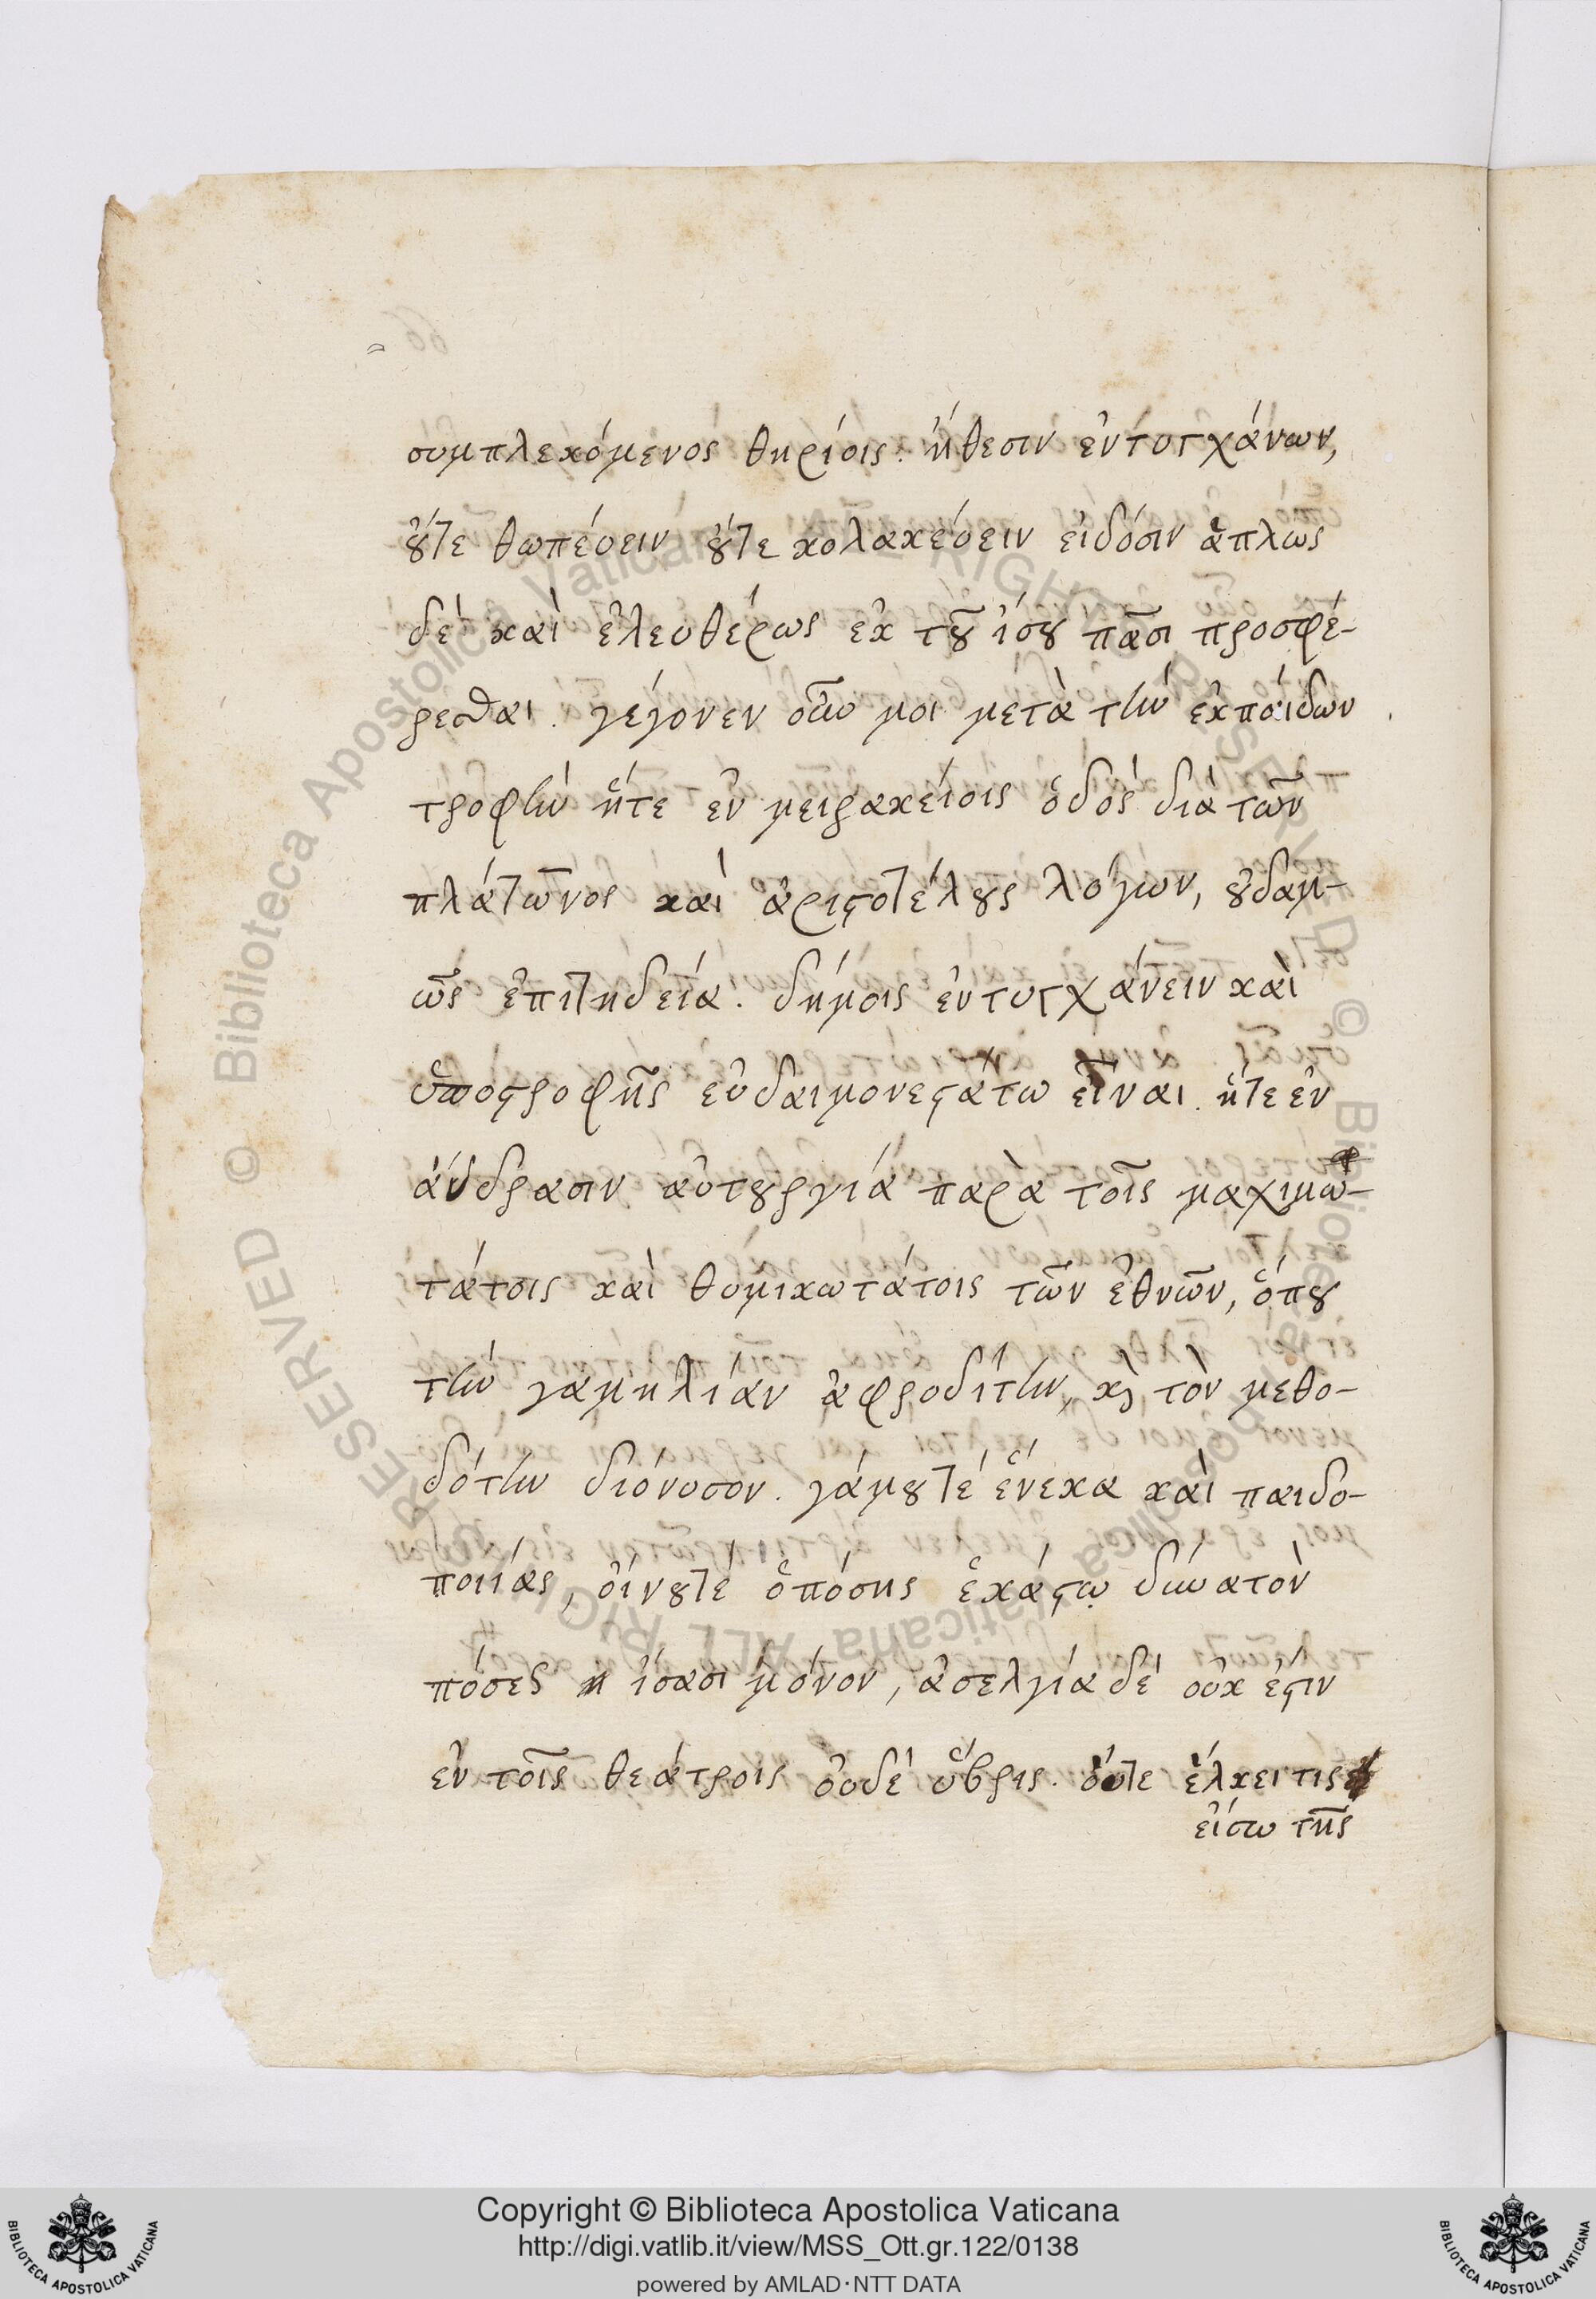 συμπλεκόμενος θηρίοις. ἤθεσιν ἐντυγχάνων,
οὔτε θωπέυειν οὔτε κολακέυειν εἰδόσιν ἁπλως
δὲ καὶ ἐλευθέρως ἐκ τοῦ ἴσου πᾶσι προσφέ-
ρεσθαι. γέγονεν οὖν μοι μετὰ τὴν ἐκπαίδων
τροφὴν ἥτε ἐν μειρακείοις ὁδὸς διὰ τῶν
πλάτωνος καὶ ἀριστοτέλους λόγων, οὐδαμ-
ῶς ἐπιτηδεία. δήμοις ἐντυγχάνειν καὶ
ὑποστροφῆς εὐδαιμονεστάτω εἶναι. ἥτε ἐν
ἀνδρασιν αὐτουργία παρὰ τοῖς μαχιμω-
τάτοις καὶ θυμικωτάτοις τῶν ἐθνῶν, ὅπου
τὴν γαμηλίαν ἀφροδίτην, κὶ τὸν μεθο-
δότην διόνυσον. γάμουτέ ἕνεκα καὶ παιδο-
ποιίας, οἴνουτὲ ὁπόσης ἑκάστῳ δυνατὸν
πόσεως ἴσασι μόνον, ἀσελγία δὲ οὐκ ἐστιν
ἐν τοῖς θεάτροις ὀυδὲ ὕβρις. ὄυτε ἕλκει τις
εἴσω τῆς
Copyright © Biblioteca Apostolica Vaticana
http://digi.vatlib.it/view/MSS_Ott.gr.122/0138
powered by AMLAD·NTT DATA
BIBLIOTECA APOSTOLICA VATICANA
BIBLIOTECA APOSTOLICA VATICANA